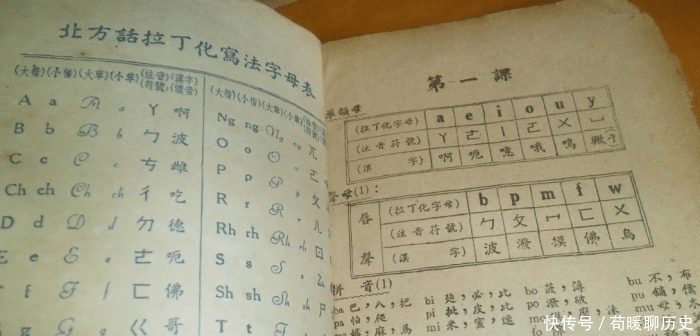 北方話拉丁化寫法字母表
(大楷)(小楷)(大草)(小草)(注音符號)(漢字讀音)
A a A a ㄚ 啊
B b B b ㄅ 波
C c C c ㄘ 雌
Ch ch Ch ch ㄔ 吃
D d D d ㄉ 德
E e E e ㄜ 呃
f F f ㄈ 佛
ㄍ 哥
(大楷)(小楷)(大草)(小草)
Ng ng Ng ng ㄫ
O o O o ㄛ
P p P p ㄆ
R r R r ㄦ
Rh rh Rh rh ㄖ
S s S s ㄙ
Sh sh Sh sh ㄕ
第一課
單韻母
(拉丁化字母) a e i o u y
(注音符號) ㄚ ㄜ ㄧ ㄛ ㄨ ㄩ
(漢字) 啊 呃 噫 哦 嗚
聲母(1):
唇聲
(拉丁化字母) b p m f w
(注音符號) ㄅ ㄆ ㄇ ㄈ ㄨ
(漢字) 波 潑 摸 佛 烏
拼音(1)
ba 巴,八,把 bi 必,比 bo bu 不,布
pi 批,皮,比 po 潑,破 pu 鋪
mi 米,蜜,迷 mu 母
快传号/苟暖聊历史